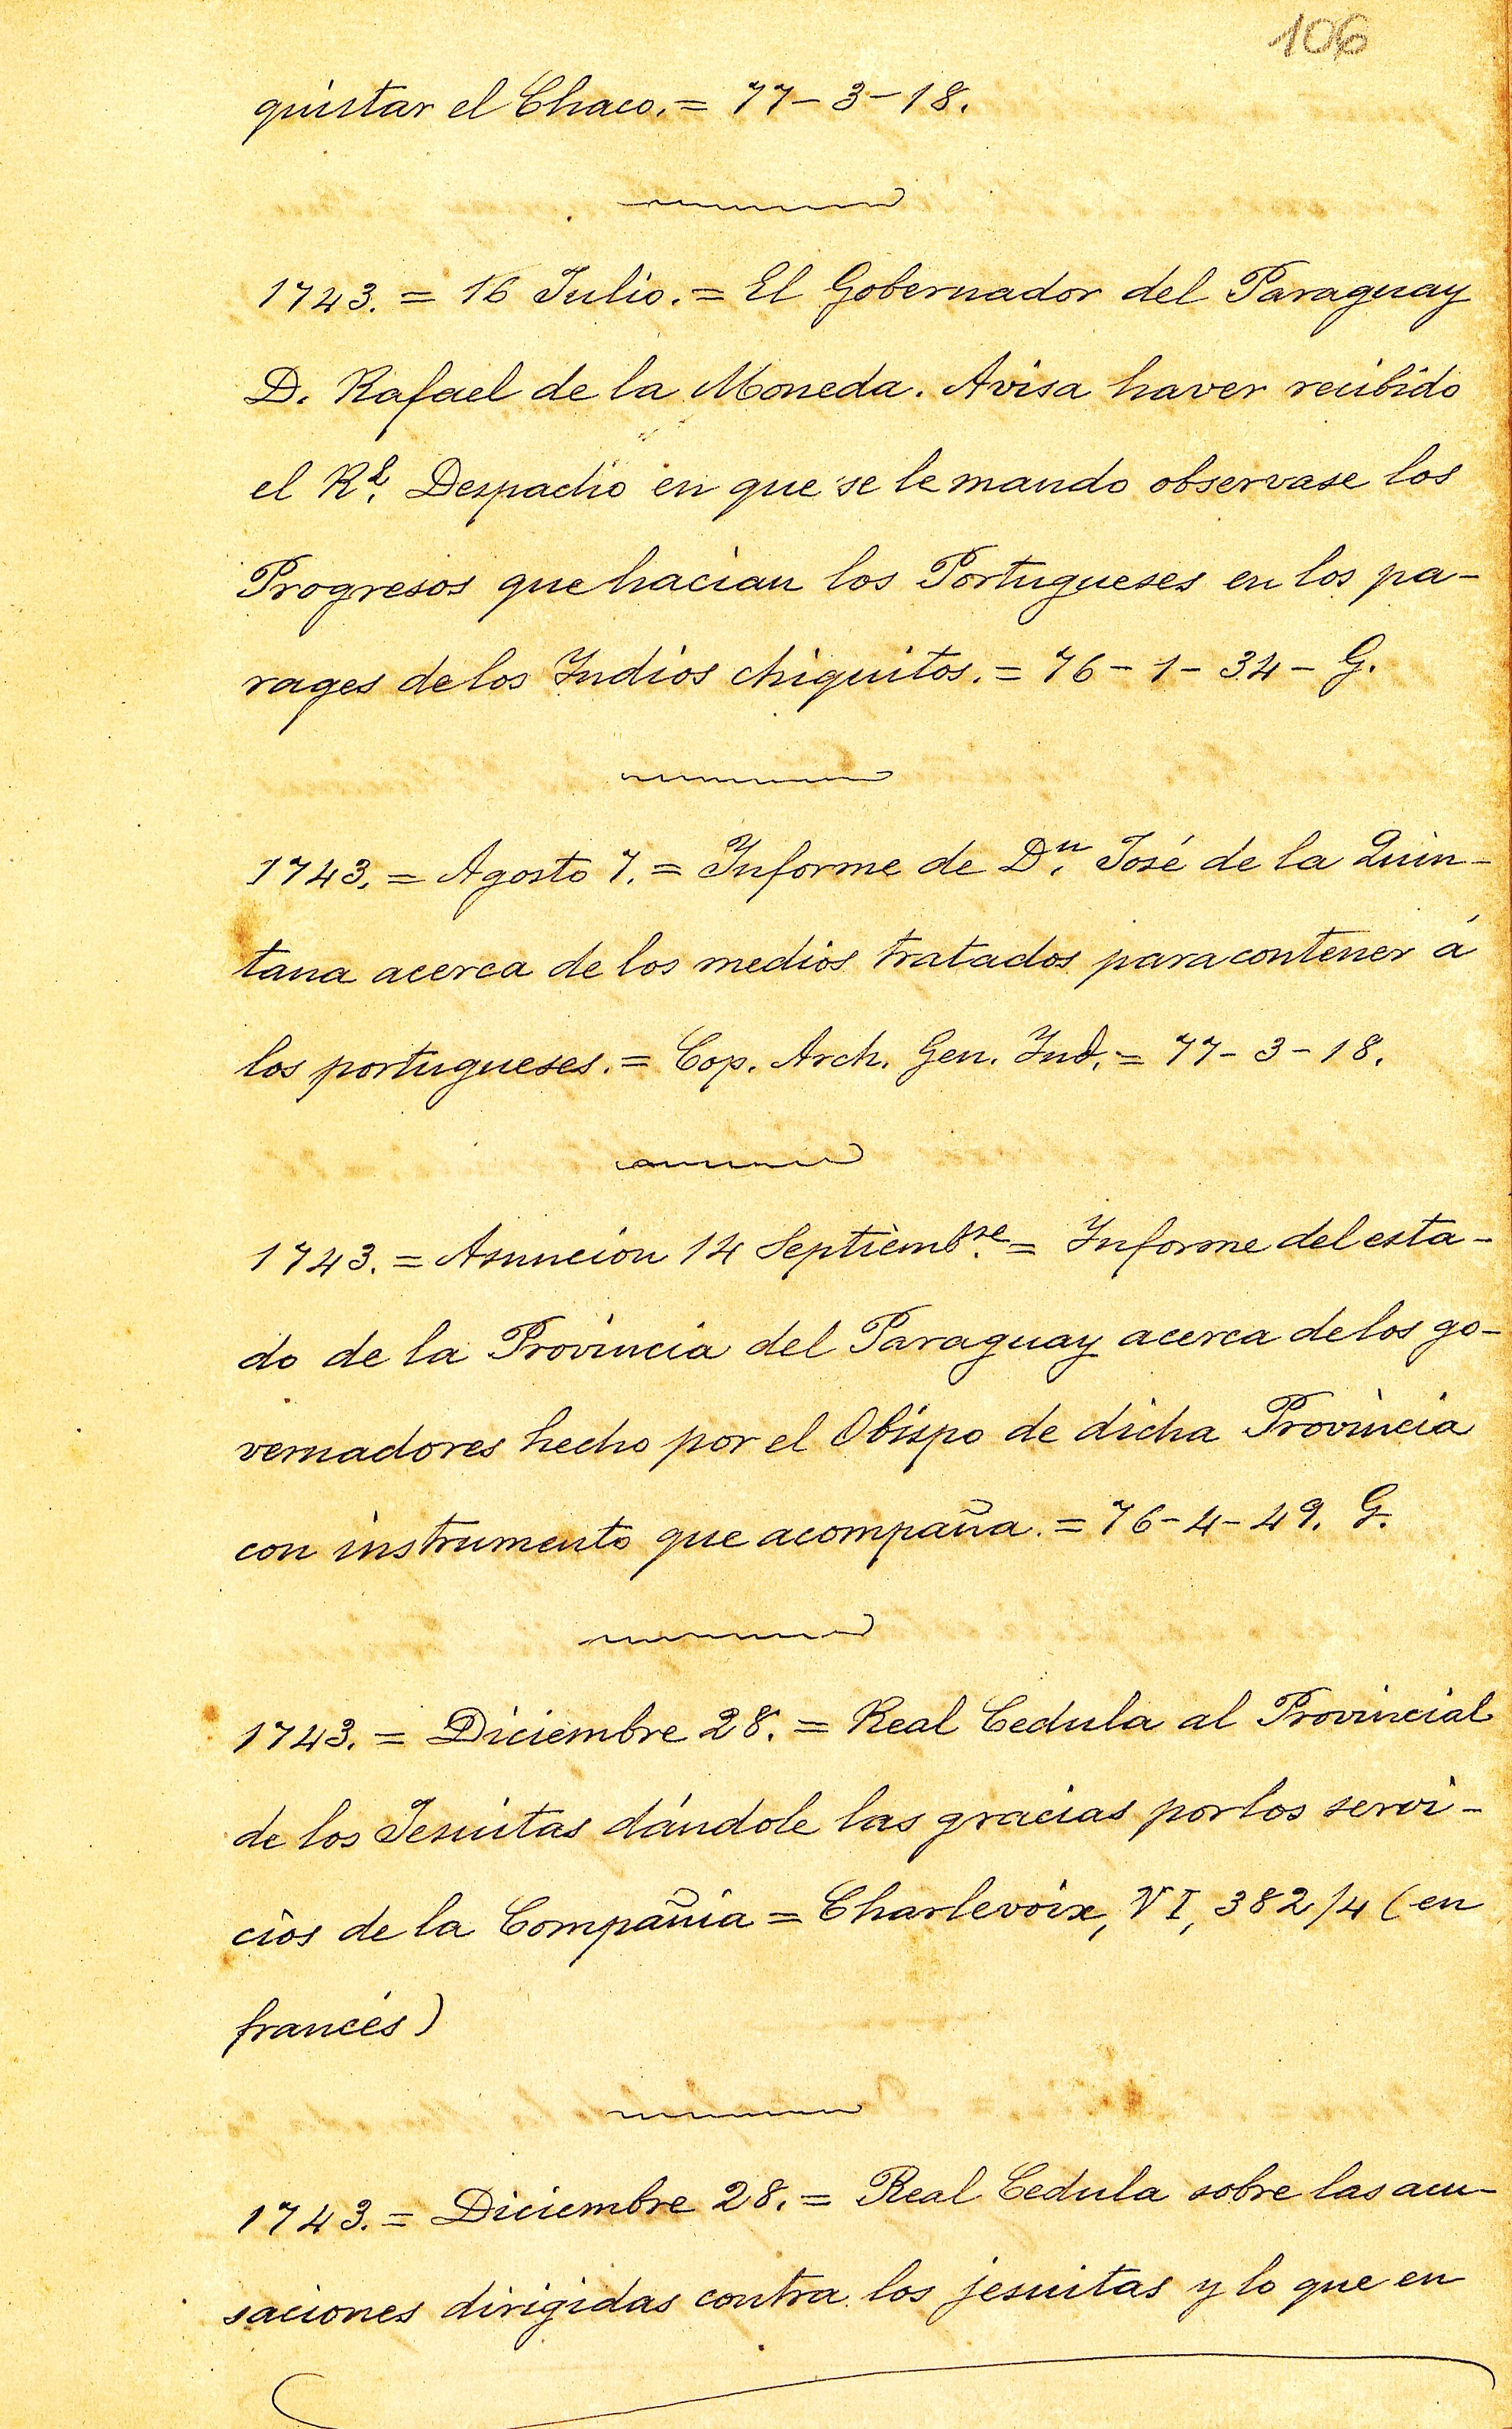 106
quistar el Chaco. = 77-3-18.
1743. = 16 Julio. = El Gobernador del Paraguay
D. Rafael de la Moneda. Avisa haver recibido
el Rl. Despacho en que se le mando observase los
Progresos que hacian los Portugueses en los pa-
rages de los Indios chiquitos. = 76-1-34-G.
1743. = Agosto 7. = Informe de Dn. José de la Quin-
tana acerca de los medios tratados para contener á
los portugueses. = Cop. Arch. Gen. Ind. = 77-3-18.
1743. = Asuncion 14 Septiembre. = Informe del esta-
do de la Provincia del Paraguay acerca de los go-
vernadores hecho por el Obispo de dicha Provincia
con instrumento que acompaña. = 76-4-49. G.
1743. = Diciembre 28. = Real Cedula al Provincial
de los Jesuitas dándole las gracias por los servi-
cios de la Compañia = Charlevoix, VI, 382/4 (en
francés)
1743. = Diciembre 28. = Real Cedula sobre las acu-
saciones dirigidas contra los jesuitas y lo que en